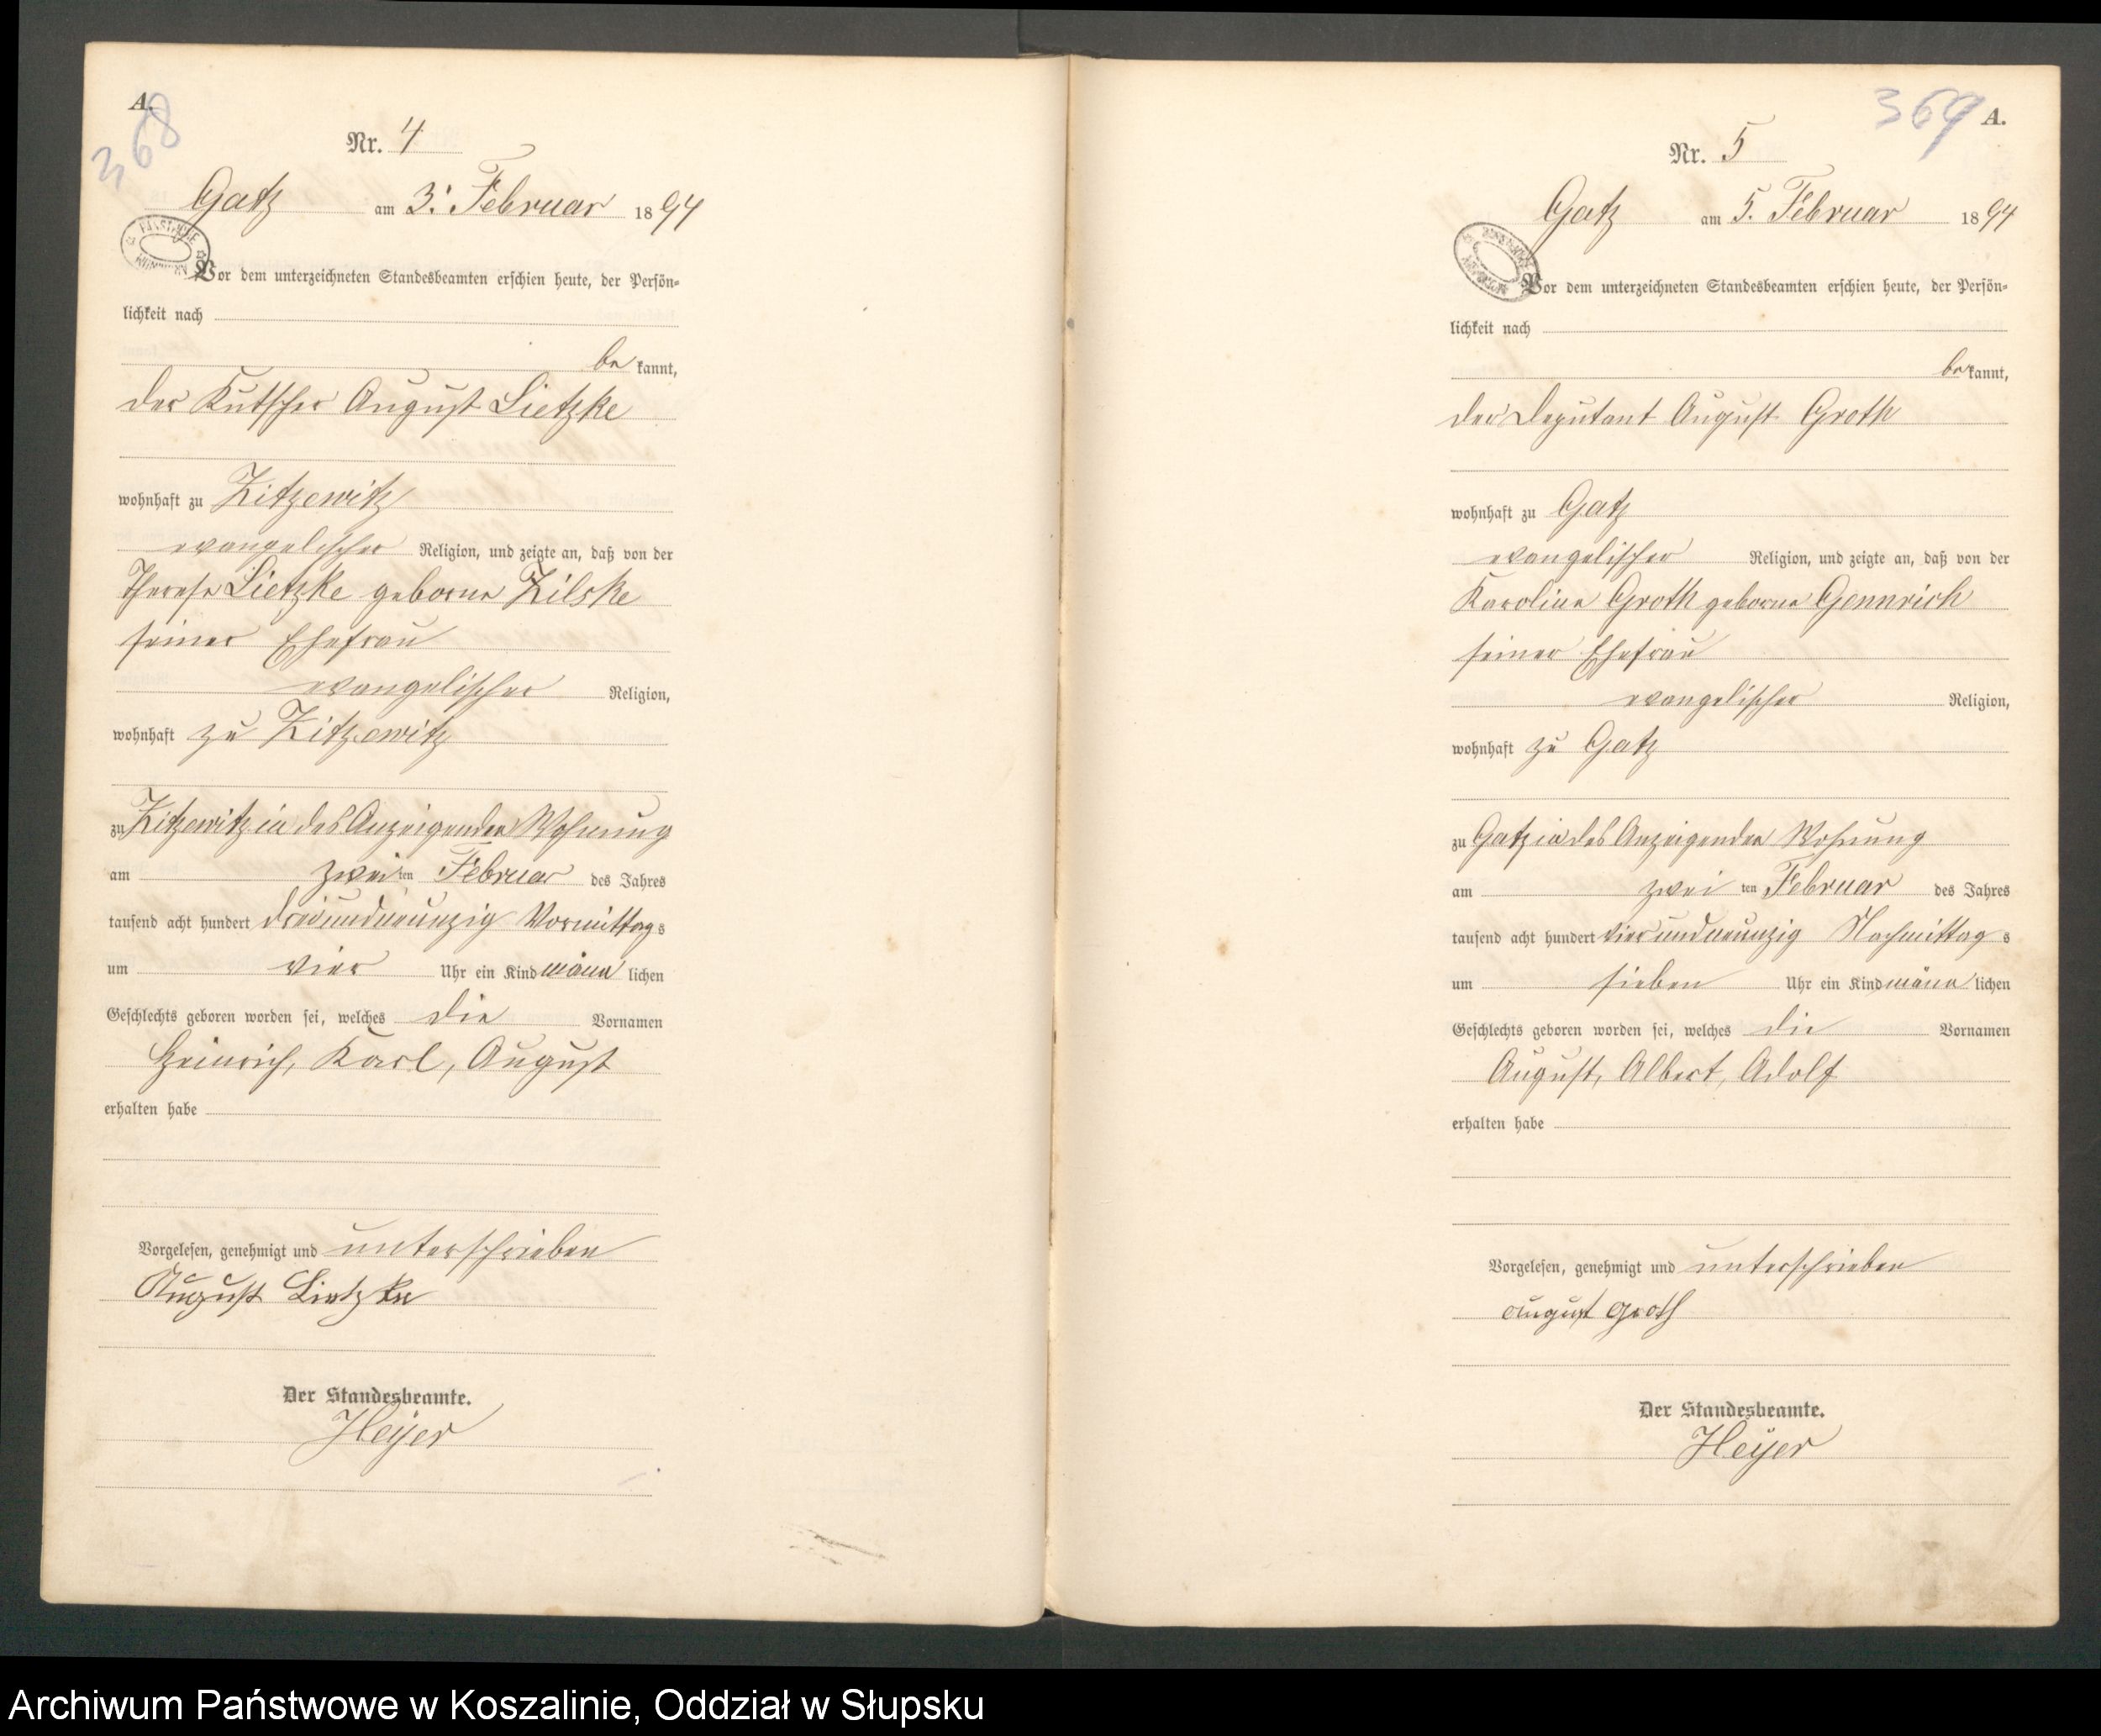 A.
368
Nr. 4
Gatz am 3. Februar 1894
Vor dem unterzeichneten Standesbeamten erschien heute, der Persön-
lichkeit nach
be kannt,
der Kutscher August Lietzke
wohnhaft zu Zitzewitz
evangelischer Religion, und zeigte an, daß von der
Therese Lietzke geborne Zilske
seiner Ehefrau
evangelischer Religion,
wohnhaft zu Zitzewitz
zu Zitzewitz in des Anzeigenden Wohnung
am zwei ten Februar des Jahres
tausend acht hundert dreiundneunzig Vormittag s
um vier Uhr ein Kind männ lichen
Geschlechts geboren worden sei, welches die Vornamen
Heinrich, Karl, August
erhalten habe
Vorgelesen, genehmigt und unterschrieben
August Lietzke
Der Standesbeamte.
Heyer
369 A.
Nr. 5
Gatz am 5. Februar 1894
Vor dem unterzeichneten Standesbeamten erschien heute, der Persön-
lichkeit nach
be kannt,
der Deputant August Groth
wohnhaft zu Gatz
evangelischer Religion, und zeigte an, daß von der
Karoline Groth geborne Gennrich
seiner Ehefrau
evangelischer Religion,
wohnhaft zu Gatz
zu Gatz in des Anzeigenden Wohnung
am zwei ten Februar des Jahres
tausend acht hundert vierundneunzig Nachmittag s
um sieben Uhr ein Kind männ lichen
Geschlechts geboren worden sei, welches die Vornamen
August, Albert, Adolf
erhalten habe
Vorgelesen, genehmigt und unterschrieben
August Groth
Der Standesbeamte.
Heyer
Archiwum Państwowe w Koszalinie, Oddział w Słupsku